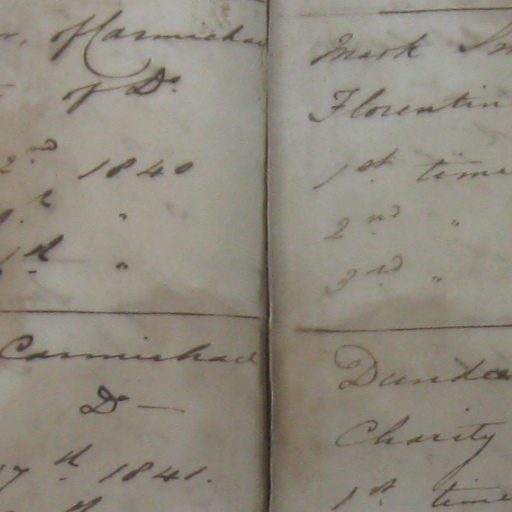 of Carmichael
of Do
2nd 1840
th "
th "
Carmichael
Do —
17th 1841.
Mark
Florentin
1st time
2nd "
3rd "
Dunda
Charity
1st time